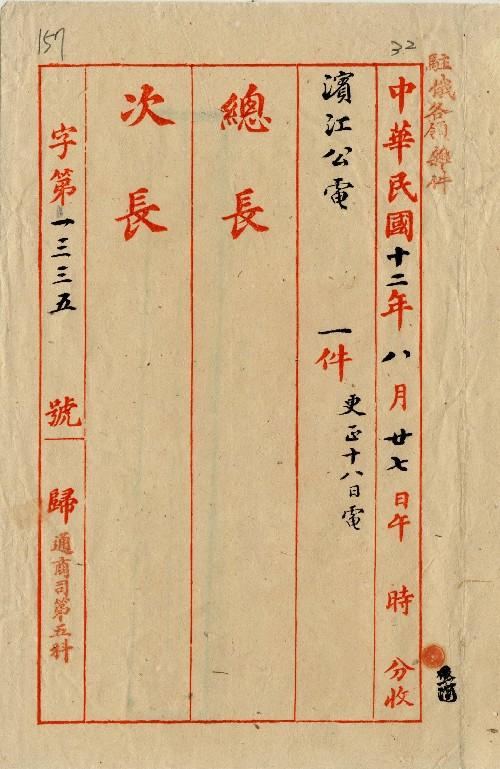 157
32
駐俄各領雜件
中華民國十二年八月廿七日午 時 分收
濱江公電 一件 更正十八日電
總長
次長
字第一三三五號 歸通商司第五科